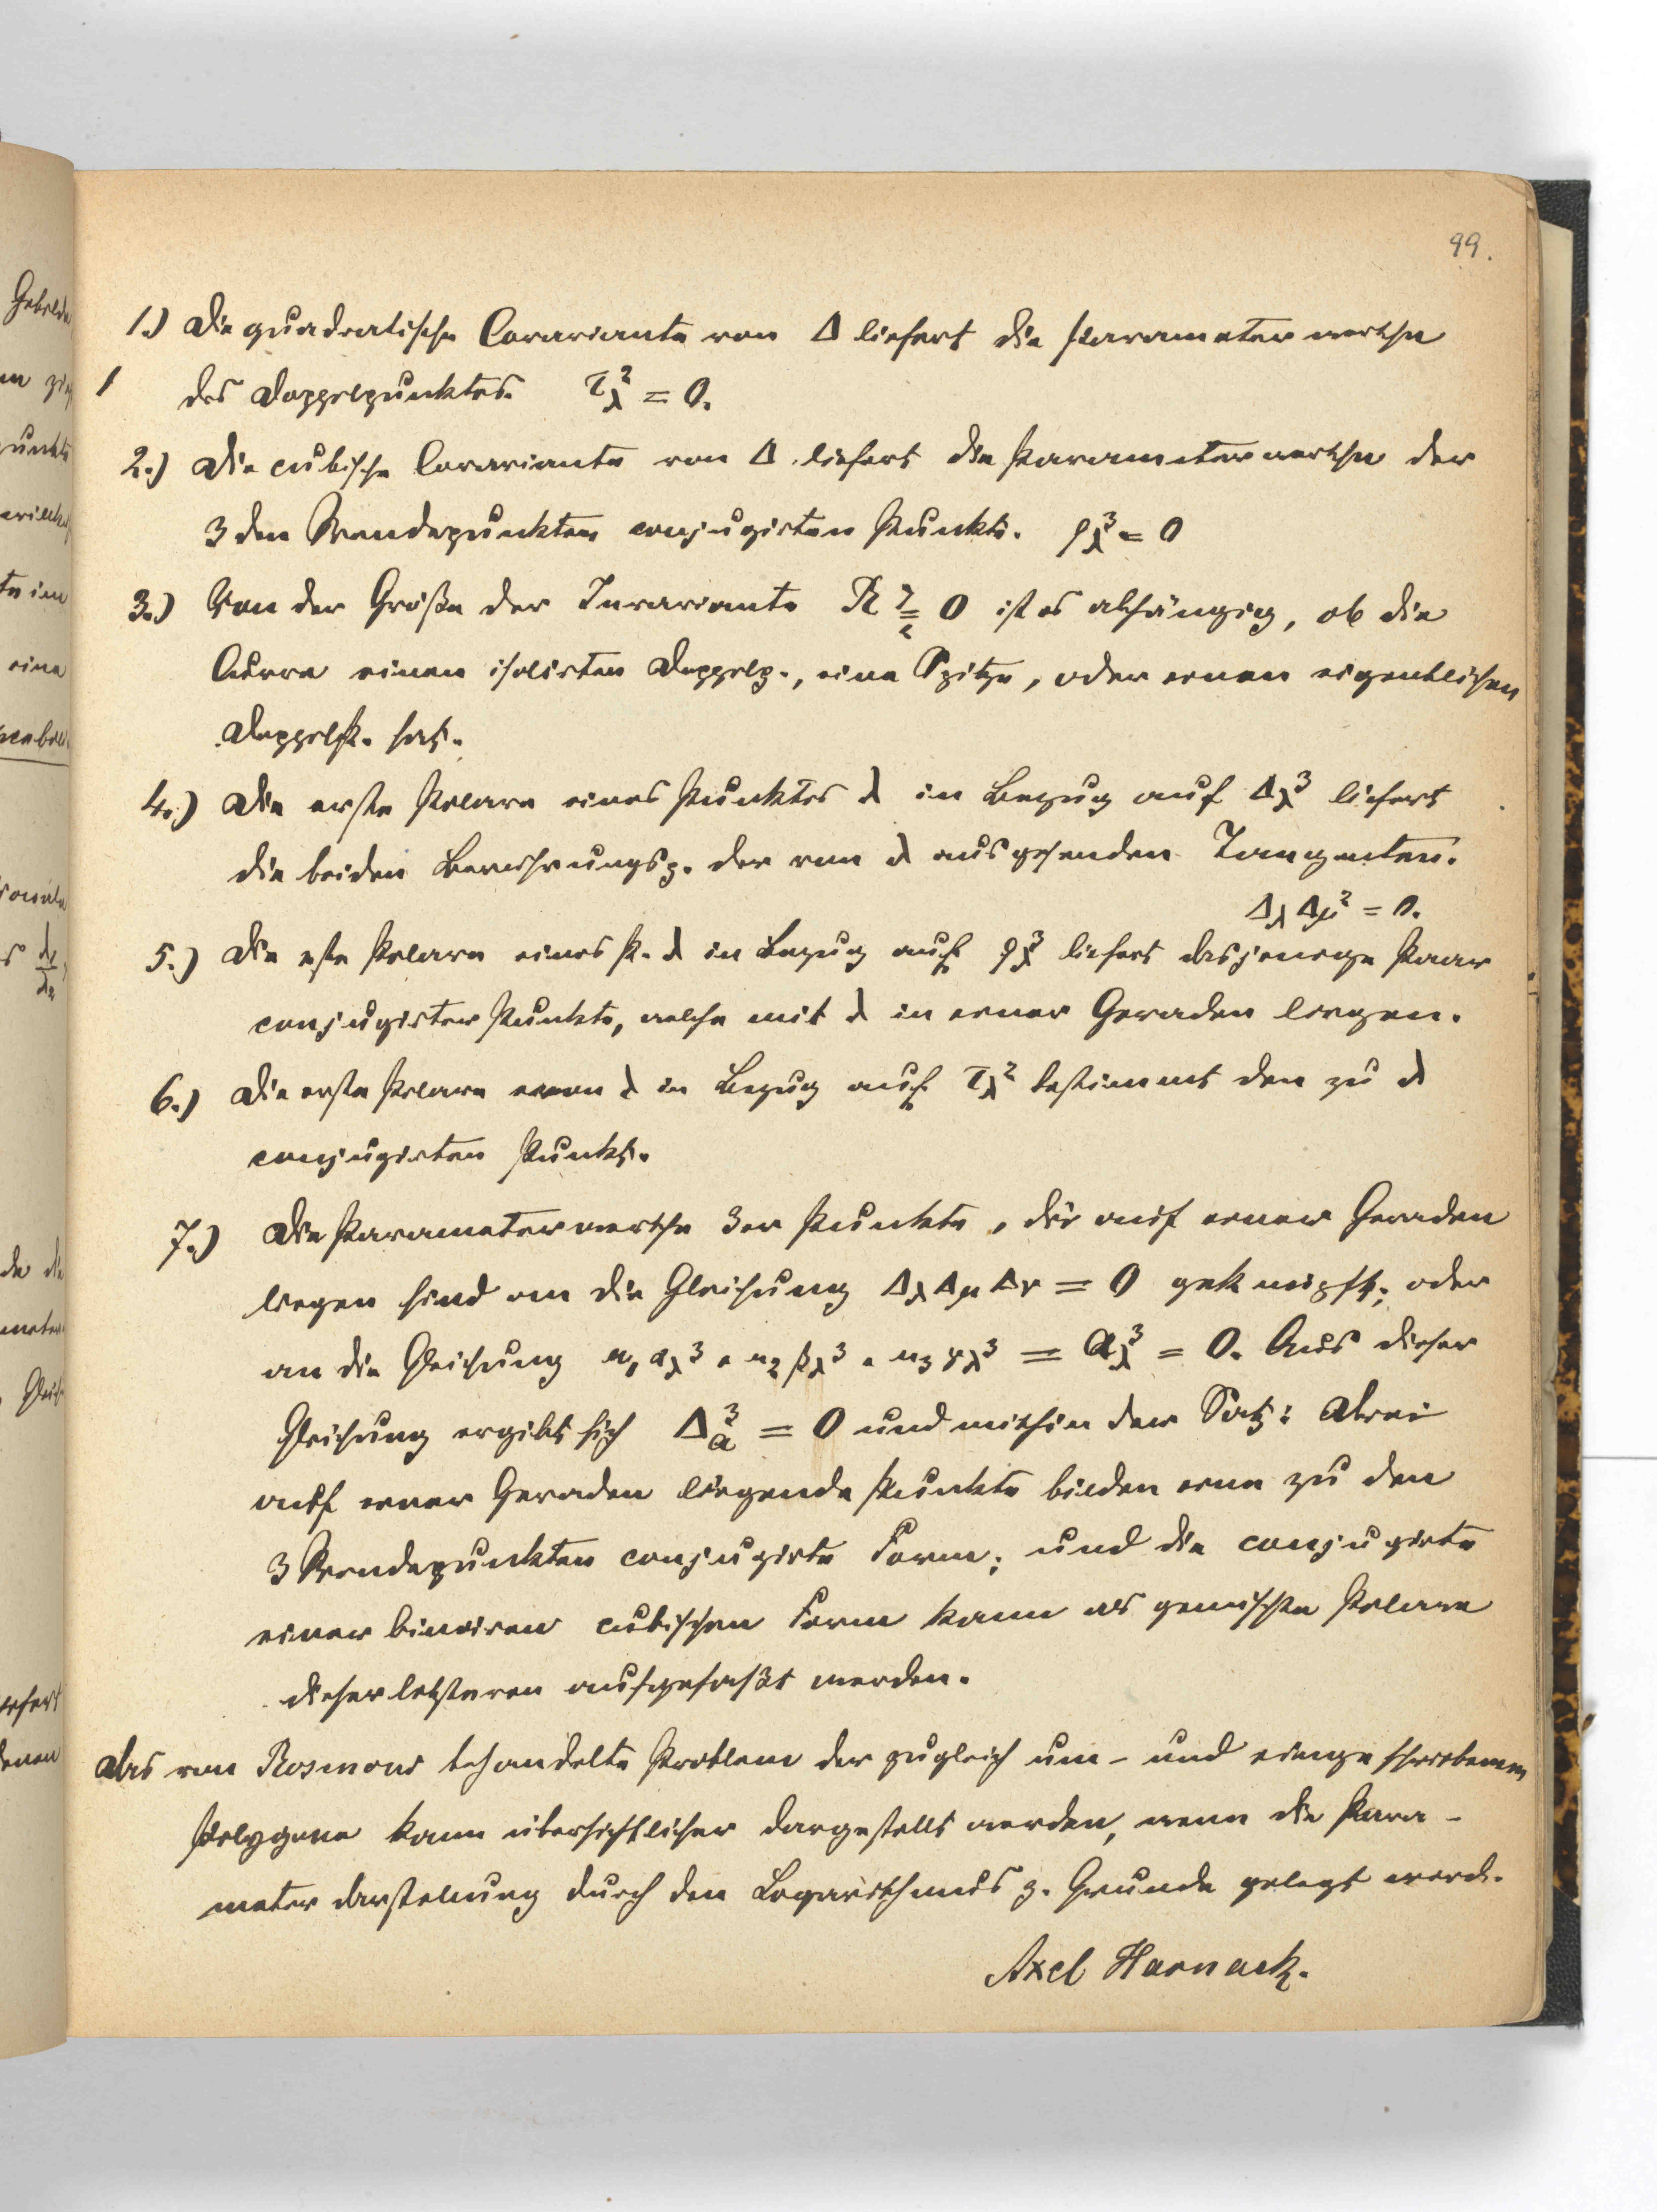 99.
1.) Die quadratische Covariante von Δ liefert die Parameterwerthe
des Doppelpunktes. τ_λ^2 = 0.
2.) Die cubische Covariante von Δ liefert die Parameterwerthe der
3 den Wendepunkten conjugirten Punkte. ρ_λ^3 = 0
3.) Von der Größe der Invariante R >=< 0 ist es abhängig, ob die
Curve einen isolirten Doppelp., eine Spitze, oder einen eigentlichen
Doppelp. hat.
4.) Die erste Polare eines Punktes λ in Bezug auf Δ_λ^3 liefert
die beiden Berührungsp. der von λ ausgehenden Tangenten.
Δ_λ Δ_μ^2 = 0.
5.) Die erste Polare eines P. λ in Bezug auf ρ_λ^3 liefert dasjenige Paar
conjugirter Punkte, welche mit λ in einer Geraden liegen.
6.) Die erste Polare von λ in Bezug auf τ_λ^2 bestimmt den zu λ
conjugirten Punkt.
7.) Die Parameterwerthe 3er Punkte, die auf einer Geraden
liegen sind an die Gleichung Δ_λ Δ_μ Δ_ν = 0 geknüpft; oder
an die Gleichung u_1 α_λ^3 + u_2 β_λ^3 + u_3 γ_λ^3 = a_λ^3 = 0. Aus dieser
Gleichung ergibt sich Δ_a^3 = 0 und mithin der Satz: Drei
auf einer Geraden liegende Punkte bilden eine zu den
3 Wendepunkten conjugirte Form; und die conjugirte
einer binären cubischen Form kann als gemischte Polare
dieser letzteren aufgefaßt werden.
Das von behandelte Problem der zugleich um- und eingeschriebenen
Polygone kann übersichtlicher dargestellt werden, wenn die Para-
meterdarstellung durch den Logarithmus z. Grunde gelegt werd.
Axel Harnack.